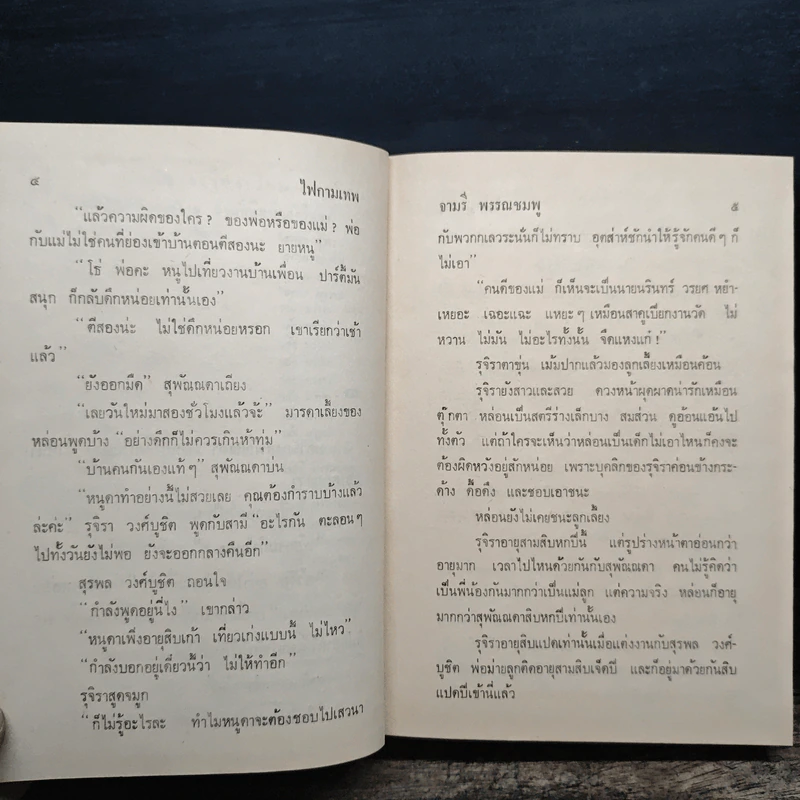 ๔ ไฟกามเทพ
“แล้วความผิดของใคร? ของพ่อหรือของแม่? พ่อ
กับแม่ไม่ใช่คนที่ย่องเข้าบ้านตอนตีสองนะ ยายหนู”
“โธ่ พ่อคะ หนูไปเที่ยวงานบ้านเพื่อน ปาร์ตี้มัน
สนุก ก็กลับดึกหน่อยเท่านั้นเอง”
“ตีสองน่ะ ไม่ใช่ดึกหน่อยหรอก เขาเรียกว่าเช้า
แล้ว”
“ยังออกมืด” สุพัณณดาเถียง
“เลยวันใหม่มาสองชั่วโมงแล้วจ้ะ” มารดาเลี้ยงของ
หล่อนพูดบ้าง “อย่างดึกก็ไม่ควรเกินห้าทุ่ม”
“บ้านคนกันเองแท้ๆ” สุพัณณดาบ่น
“หนูดาทำอย่างนี้ไม่สวยเลย คุณต้องกำราบบ้างแล้ว
ล่ะค่ะ” รุจิรา วงศ์บูชิต พูดกับสามี “อะไรกัน ตะลอนๆ
ไปทั้งวันยังไม่พอ ยังจะออกกลางคืนอีก”
สุรพล วงศ์บูชิต ถอนใจ
“กำลังพูดอยู่นี่ไง” เขากล่าว
“หนูดาเพิ่งอายุสิบเก้า เที่ยวเก่งแบบนี้ ไม่ไหว”
“กำลังบอกอยู่เดี๋ยวนี้ว่า ไม่ให้ทำอีก”
รุจิราสูดจมูก
“ก็ไม่รู้อะไรละ ทำไมหนูดาจะต้องชอบไปเสวนา
จามรี พรรณชมพู ๕
กับพวกกเลวระนั่นก็ไม่ทราบ อุตส่าห์ชักนำให้รู้จักคนดีๆ ก็
ไม่เอา”
“คนดีของแม่ ก็เห็นจะเป็นนายนรินทร์ วรยศ หยำ-
เหยอะ เฉอะแฉะ แหยะๆ เหมือนสาคูเปียกงานวัด ไม่
หวาน ไม่มัน ไม่อะไรทั้งนั้น จืดแหงแก๋!”
รุจิราตาขุ่น เม้มปากแล้วมองลูกเลี้ยงเหมือนค้อน
รุจิรายังสาวและสวย ดวงหน้าผุดผาดน่ารักเหมือน
ตุ๊กตา หล่อนเป็นสตรีร่างเล็กบาง สมส่วน ดูอ้อนแอ้นไป
ทั้งตัว แต่ถ้าใครจะเห็นว่าหล่อนเป็นเด็กไม่เอาไหนก็คงจะ
ต้องผิดหวังอยู่สักหน่อย เพราะบุคลิกของรุจิราค่อนข้างกระ-
ด้าง ดื้อดึง และชอบเอาชนะ
หล่อนยังไม่เคยชนะลูกเลี้ยง
รุจิราอายุสามสิบหกปีนี้ แต่รูปร่างหน้าตาอ่อนกว่า
อายุมาก เวลาไปไหนด้วยกันกับสุพัณณดา คนไม่รู้คิดว่า
เป็นพี่น้องกันมากกว่าเป็นแม่ลูก แต่ความจริง หล่อนก็อายุ
มากกว่าสุพัณณดาสิบหกปีเท่านั้นเอง
รุจิราอายุสิบแปดเท่านั้นเมื่อแต่งงานกับสุรพล วงศ์-
บูชิต พ่อม่ายลูกติดอายุสามสิบเจ็ดปี และก็อยู่มาด้วยกันสิบ
แปดปีเข้านี่แล้ว